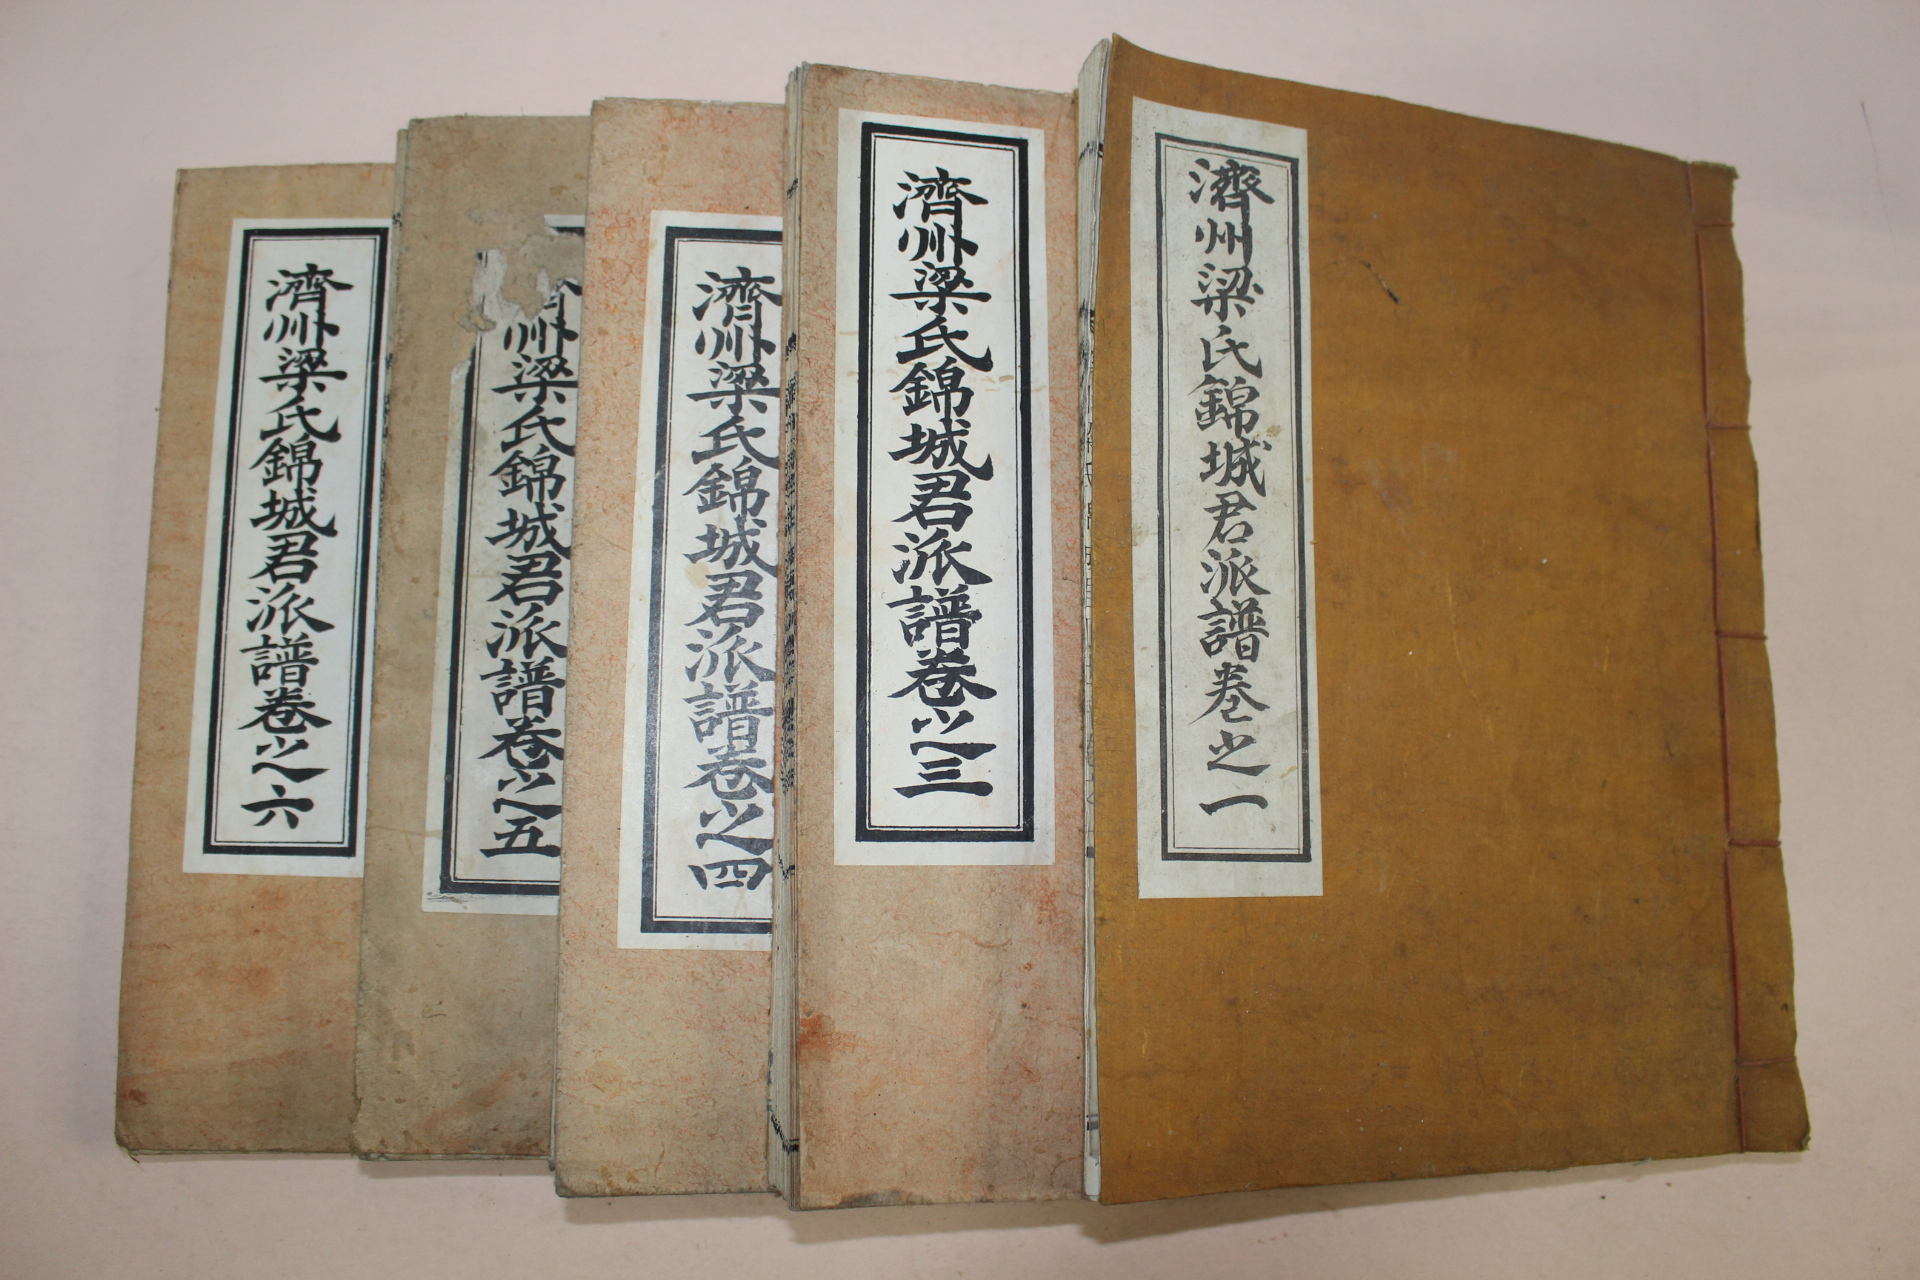 濟州梁氏錦城君派譜卷之一
濟州梁氏錦城君派譜卷之三
濟州梁氏錦城君派譜卷之四
州梁氏錦城君派譜卷之五
濟州梁氏錦城君派譜卷之六